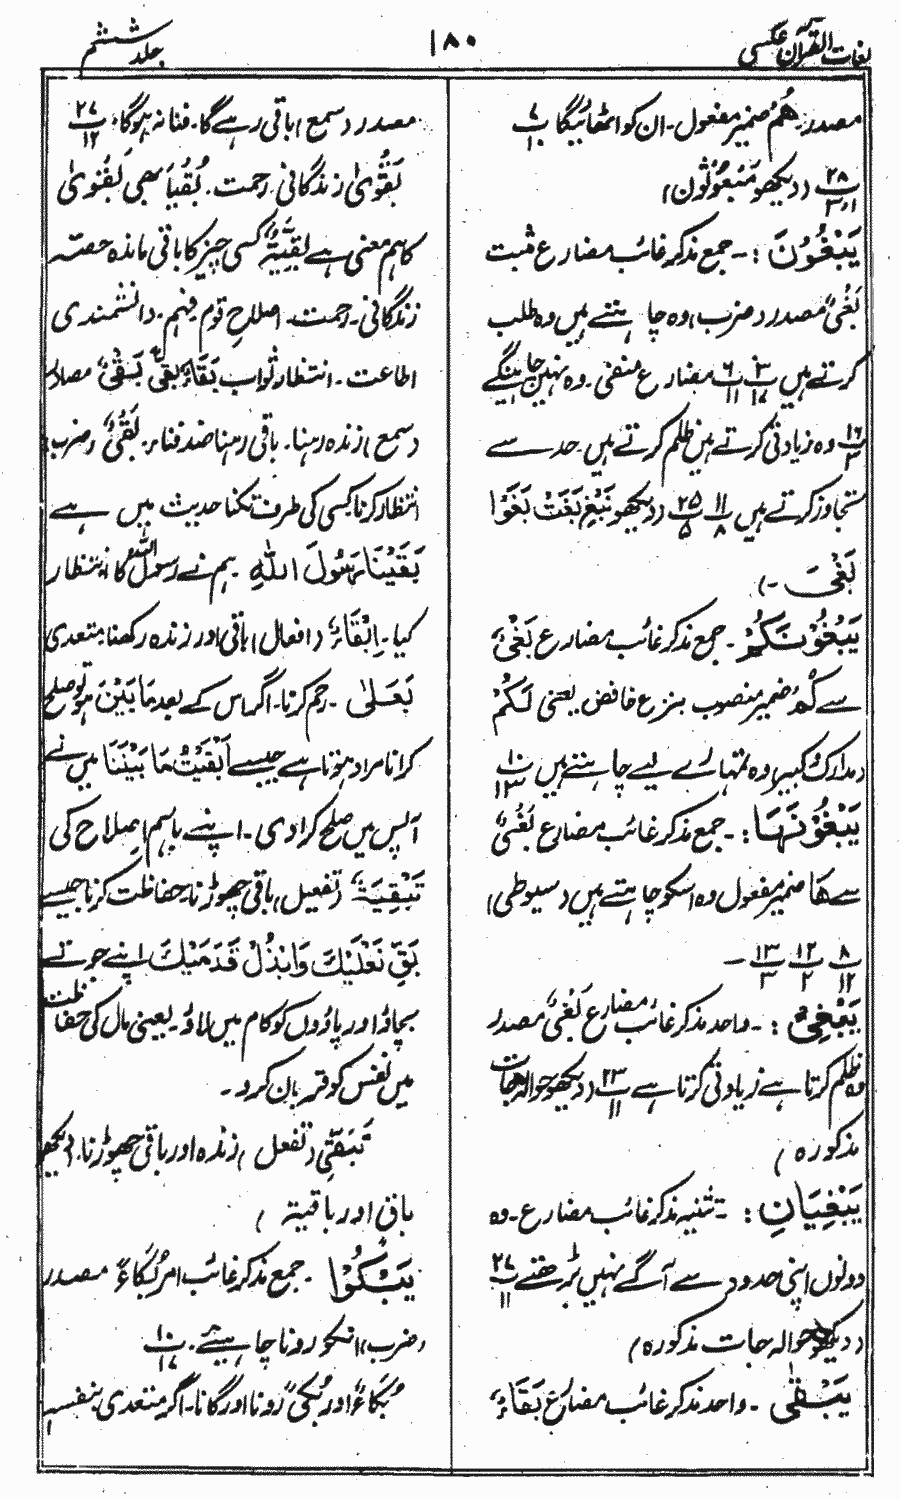 لغات القرآن عکسی
۱۸۰
جلد ششم
مصدر۔ هُمْ ضمیر مفعول۔ ان کو اٹھائیگا ۷/۱
۲۸ (دیکھو مَبْعُوْثُوْن)
یَبْغُوْنَ :۔ جمع مذکر غائب مضارع مثبت
بَغْیٌ مصدر (ضرب) وہ چاہتے ہیں وہ طلب
کرتے ہیں مضارع منفی۔ وہ نہیں چاہینگے
۱۶ وہ زیادتی کرتے ہیں ظلم کرتے ہیں حد سے
تجاوز کرتے ہیں ۱۱/۸ ۲۵/۵ (دیکھو نَبْغِ بَغَتْ بَغَوْا
بَغْیَ ۔)
یَبْغُوْنَکُمْ ۔ جمع مذکر غائب مضارع بَغْیٌ
سے کُمْ ضمیر منصوب بنزع خافض یعنی لَکُمْ
(مدارک و کبیر) وہ تمہارے لیے چاہتے ہیں ۱۰/۱۳
یَبْغُوْنَهَا :۔ جمع مذکر غائب مضارع بَغْیٌ
سے هَا ضمیر مفعول وہ اسکو چاہتے ہیں (سیوطی)
۸/۱۲ ۱۲/۲ ۱۳/۳ ۔
یَبْغِیْ :۔ واحد مذکر غائب مضارع بَغْیٌ مصدر
وہ ظلم کرتا ہے زیادتی کرتا ہے ۲۳/۱۱ (دیکھو حوالہ جات
مذکورہ)
یَبْغِیَانِ :۔ تثنیہ مذکر غائب مضارع۔ وہ
دونوں اپنی حدود سے آگے نہیں بڑھتے ۲۷/۱۱
(دیکھو حوالہ جات مذکورہ)
یَبْقٰی ۔ واحد مذکر غائب مضارع بَقَاءٌ
مصدر (سمع) باقی رہے گا۔ فنا نہ ہوگا ۲۷/۱۲
بَقْوٰی زندگانی۔ رحمت۔ بُقْیَا بھی بَقْوٰی
کا ہم معنی ہے بَقِیَّةٌ کسی چیز کا باقی ماندہ حصّہ
زندگانی۔ رحمت۔ اصلاحِ قوم۔ فہم۔ دانشمندی
اطاعت۔ انتظار ثواب بَقَاءٌ بَقْیٌ مصادر
(سمع) زندہ رہنا۔ باقی رہنا ضد فناء۔ بَقْیٌ (ضرب)
انتظار کرنا کسی کی طرف تکنا حدیث میں ہے
بَقَیْنَا رَسُوْلَ اللّٰهِ ۔ ہم نے رسول اللہ کا انتظار
کیا۔ اِبْقَاءٌ (افعال) باقی اور زندہ رکھنا متعدی
بَعَلٰی ۔ رحم کرنا۔ اگر اس کے بعد مَا بَیْنَ ہو تو صلح
کرانا مراد ہوتا ہے جیسے اَبْقَیْتُ مَا بَیْنَنَا میں نے
آپس میں صلح کرا دی۔ اپنے باہم اصلاح کی
تَبْقِیَةٌ (تفعیل) باقی چھوڑنا۔ حفاظت کرنا جیسے
بَقِّ نَعْلَیْكَ وَابْذُلْ قَدَمَیْكَ اپنے جوتے
بچاؤ اور پاؤں کو کام میں لاؤ۔ یعنی مال کی حفاظت
میں نفس کو قربان کرد۔
تَبَقِّی (تفعل) زندہ اور باقی چھوڑنا۔ (دیکھو
باقی اور باقیتہ)
یَبْکُوْا ۔ جمع مذکر غائب امر بُکَاءٌ مصدر
(ضرب) انکو رونا چاہیے ۔ ۱۰/۱۷
بُکَاءٌ اور بُکًی رونا اور گانا۔ اگر متعدی بنفسہٖ